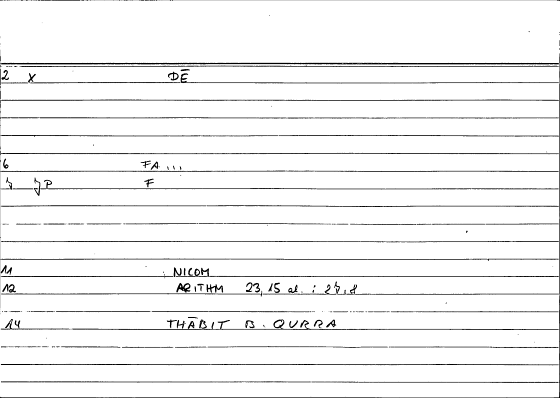 2 X DĒ
6 FA...
7 7P F
11 NICOM
12 ARITHM 23,15 al. : 27,8
14 THĀBIT B. QURRA